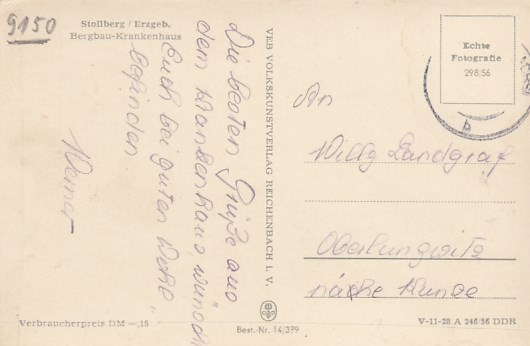 9150
Stollberg / Erzgeb.
Bergbau-Krankenhaus
Die besten Grüße aus
dem Krankenhaus, wünscht
Euch bei guten Wohl
befinden.
Werner
VEB VOLKSKUNSTVERLAG REICHENBACH I. V.
Echte
Fotografie
298/56
b
An
Willy Landgraf
Oberlungwitz
Verbraucherpreis DM –,15
Best.-Nr. 14/379
V-11-28 A 246/56 DDR